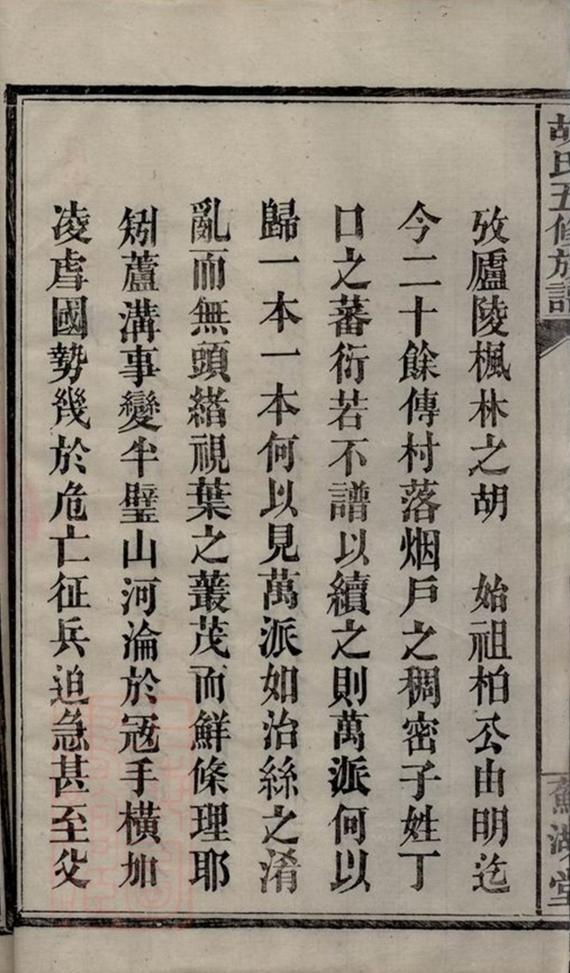 胡氏五修族譜
蘇湖堂
攷廬陵楓林之胡 始祖柏公由明迄
今二十餘傳村落烟戶之稠密子姓丁
口之蕃衍若不譜以續之則萬派何以
歸一本一本何以見萬派如治絲之淆
亂而無頭緒視葉之叢茂而鮮條理耶
矧蘆溝事變半壁山河淪於冦手橫加
凌虐國勢幾於危亡征兵迫急甚至父